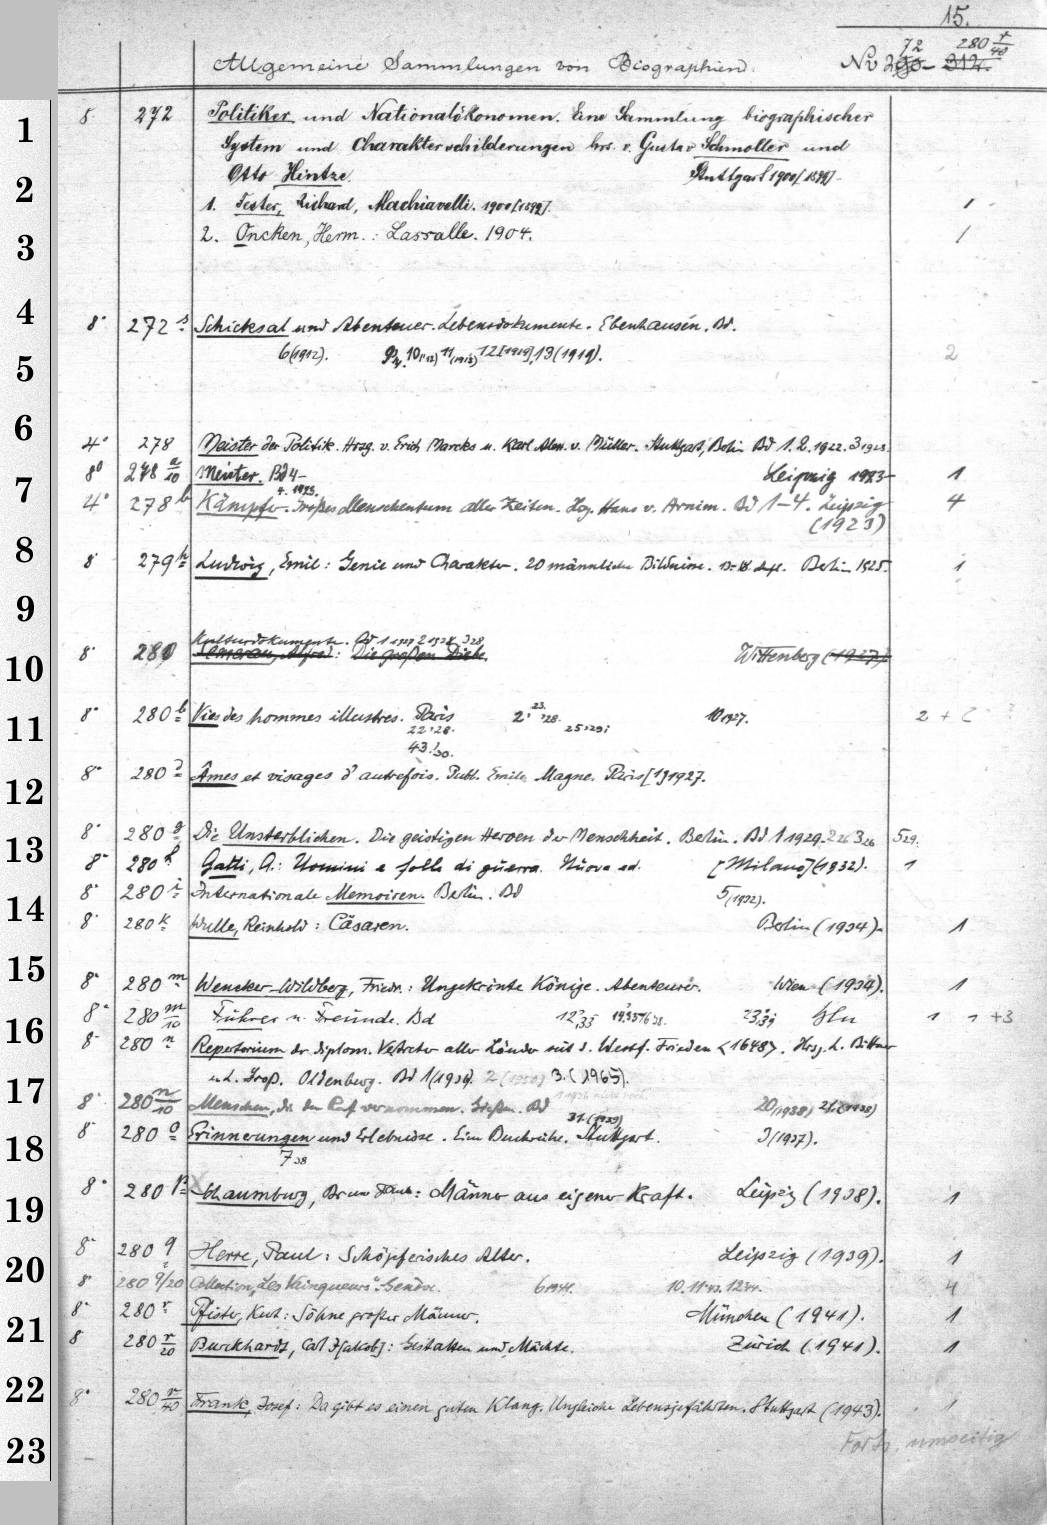 15.
Allgemeine Sammlungen von Biographien.
No 272 - 280 r/40
1
8° 272 Politiker und Nationalökonomen. Eine Sammlung biographischer
System und Charakterschilderungen hrs. v. Gustav Schmoller und
2
Otto Hintze. Stuttgart 1900 [1899] -
1. Fester, Richard, Machiavelli. 1900 [1899]. 1
3
2. Oncken, Herm.: Lassalle. 1904. 1
4
8° 272 s Schicksal und Abenteuer. Lebensdokumente. Ebenhausen. Bd.
5
6 (1912). 10 ('12) 11 (1912) 12 [1919], 13 (1919). 2
6
4° 278 Meister der Politik. Hrsg. v. Erich Marcks u. Karl Alex. v. Müller. Stuttgart, Berlin Bd 1. 2. 1922. 3 1923.
8° 278 a/10 Meister. Bd 4- Leipzig 1923- 1
7
4. 1923.
4° 278 b Kämpfer. Großes Menschentum aller Zeiten. Hg. Hans v. Arnim. Bd 1-4. Leipzig 4
(1923)
8
8° 279 k Ludwig, Emil: Genie und Charakter. 20 männliche Bildnisse. Berlin 1925. 1
9
Kulturdokumente. Bd 1 1927 2 1928 3 28.
10
8° 280 Semerau, Alfred: Die großen Diebe. Wittenberg (1927)
11
8° 280 b Vies des hommes illustres. Paris 2. 23. '28. 10 1927. 2 +
22 '28. 25 '29;
43. '30.
12
8° 280 Âmes et visages d'autrefois. Publ. Emile Magne. Paris [1] 1927.
13
8° 280 g Die Unsterblichen. Die geistigen Heroen der Menschheit. Berlin. Bd 1 1929. 2 3 5 29.
8° 280 Gatti, A.: Uomini e folle di guerra. Nuova ed. [Milano] (1932). 1
14
8° 280 i Internationale Memoiren. Berlin. Bd 5 (1932).
8° 280 k Wulle, Reinhold: Cäsaren. Berlin (1934). 1
15
8° 280 m Wencker-Wildberg, Friedr.: Ungekrönte Könige. Abenteurer. Wien (1934). 1
16
8° 280 m/10 Führer u. Freunde. Bd 12, 35 23, 39 1 1 +3
8° 280 n Repertorium der diplom. Vertreter aller Länder seit d. Westf. Frieden <1648>. Hrsg. L. Bittner
u. L. Groß. Oldenburg. Bd 1 (1936). 2 (1950) 3. (1965).
17
8° 280 n/10 Menschen, die den Ruf vernommen. Gießen. Bd 20 (1938) 21. (1938)
31. (1939)
18
8° 280 o Erinnerungen und Erlebnisse. Eine Buchreihe. Stuttgart. 3 (1937).
7 38
19
8° 280 p Schaumburg, Bruno Paul: Männer aus eigener Kraft. Leipzig (1938). 1
20
8° 280 q Herre, Paul: Schöpferisches Alter. Leipzig (1939). 1
8° 280 q/20 Collection „Les Vainqueurs". Genève. 6 1941. 10. 11 43. 12 44. 4
21
8° 280 r Pfister, Kurt: Söhne großer Männer. München (1941). 1
8° 280 r/20 Burckhardt, Carl J[akob]: Gestalten und Mächte. Zürich (1941). 1
22
8° 280 r/40 Frank, Josef: Da gibt es einen guten Klang. Ungleiche Lebensgefährten. Stuttgart (1943). 1
23
Forts. umseitig